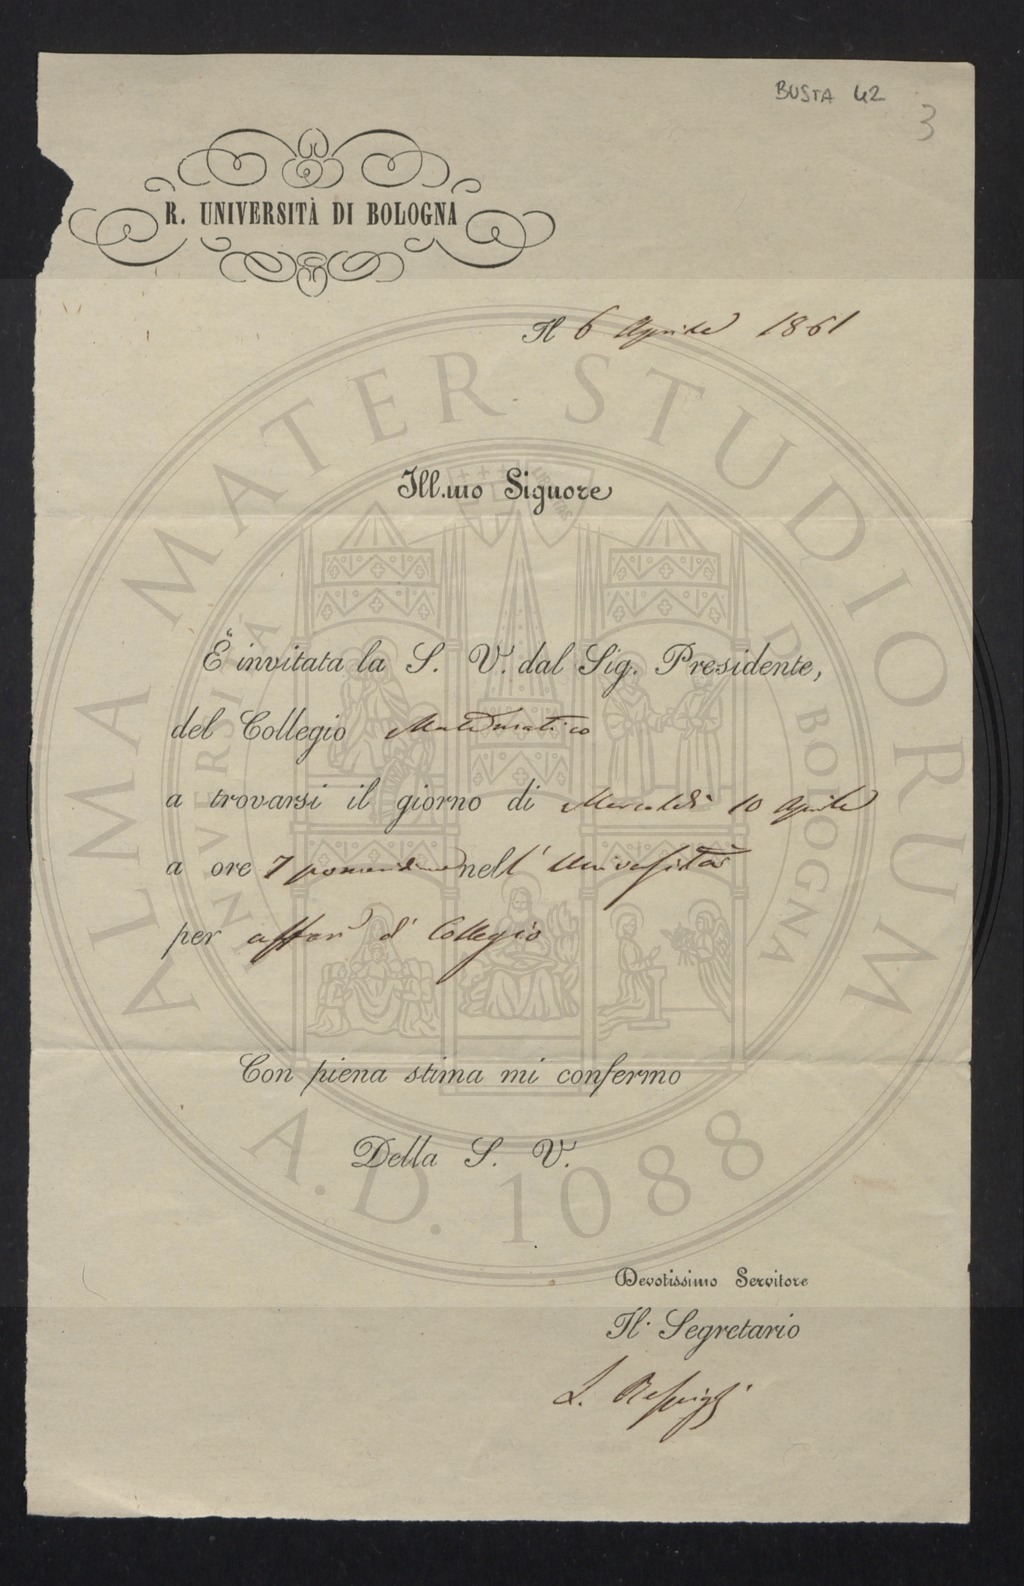 BUSTA 42
3
R. UNIVERSITÀ DI BOLOGNA
Il 6 Aprile 1861
Ill.mo Signore
È invitata la S. V. dal Sig. Presidente,
del Collegio Matematico
a trovarsi il giorno di Mercoldì 10 Aprile
a ore 7 pomeridiane nell' Università
per affari di Collegio
Con piena stima mi confermo
Della S. V.
Devotissimo Servitore
Il Segretario
L. Respighi
ALMA MATER STUDIORUM
A.D. 1088
UNIVERSITÀ DI BOLOGNA